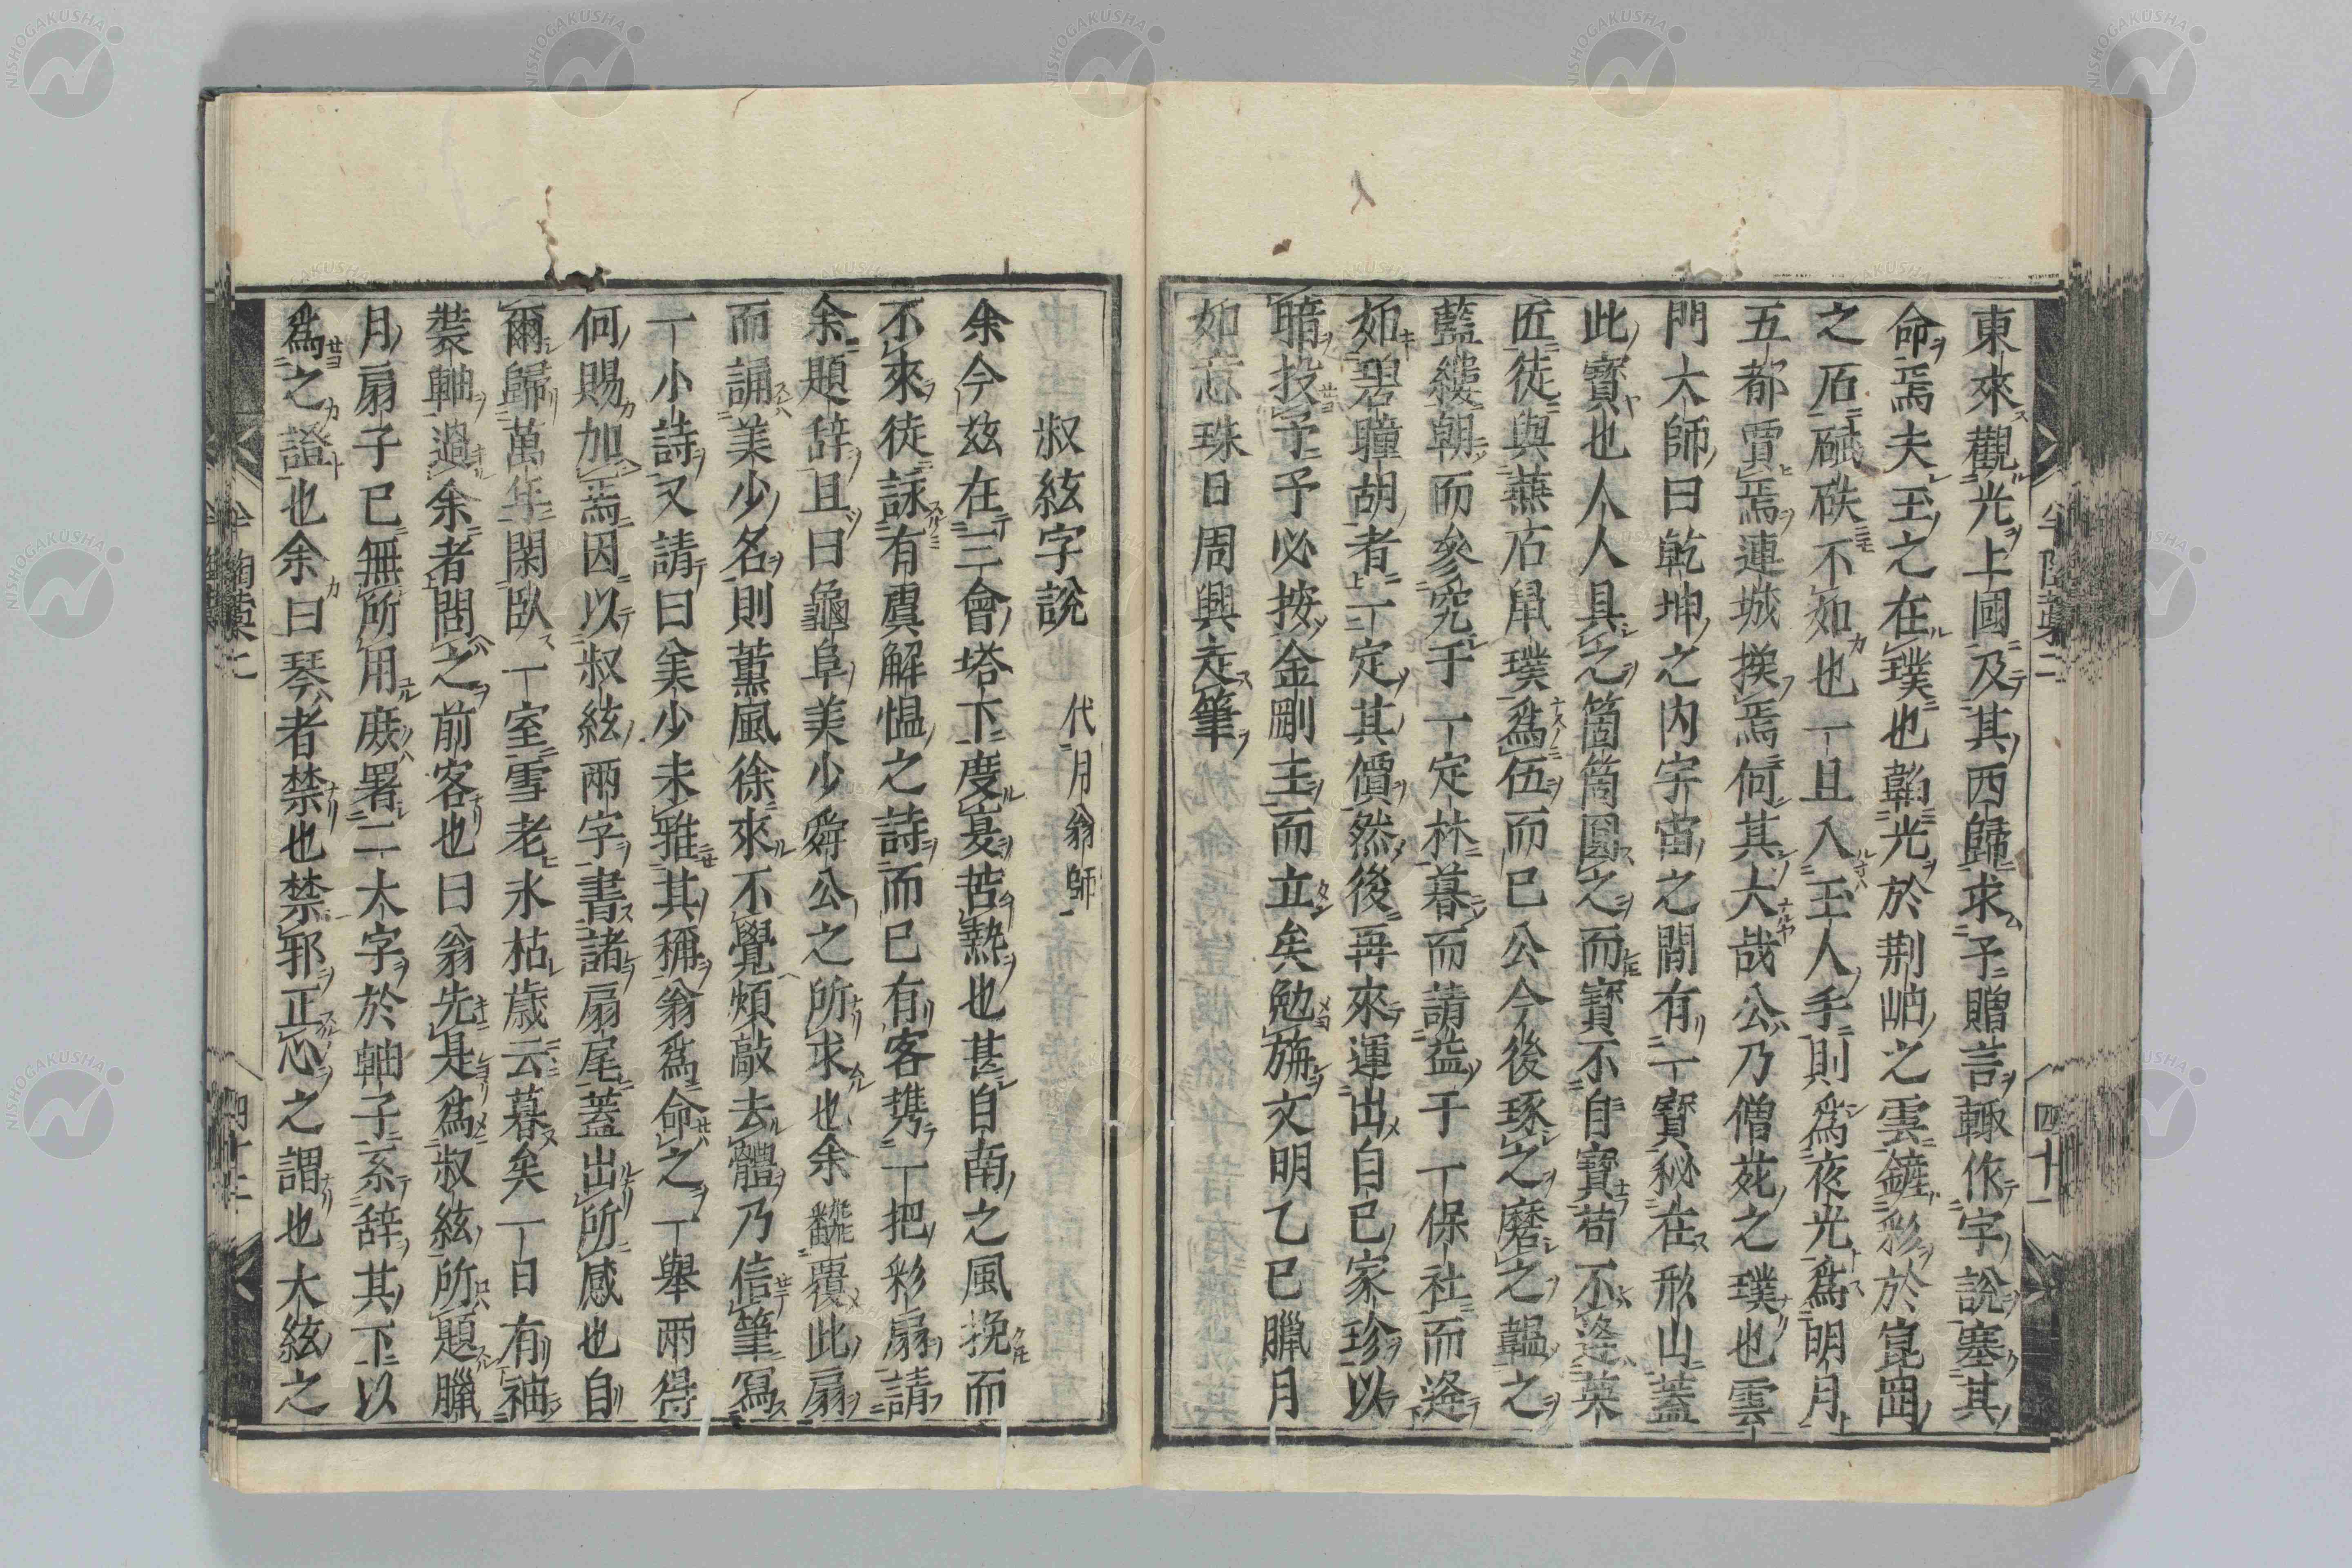 東來觀光上國及其西歸求予贈言輙作字說塞其
命焉夫玉之在璞也韜光於荆岫之雲鏟彩於崑岡
之石碔砆不如也一旦入玉人手則爲夜光爲明月
五都賈焉連城換焉何其大哉公乃僧苑之璞也雲
門大師曰乾坤之内宇宙之間有一寶秘在形山蓋
此寶也人人具之箇箇圓之而寶不自寶苟不逢英
匠徒與蕪石鼠璞爲伍而已公今後琢之磨之韞之
藍縷朝而參究于一定林暮而請益于一保社而逢
如碧瞳胡者一定其價然後再來運出自己家珍以
暗投予予必按金剛主而立矣勉旃文明乙巳臘月
如意珠日周興走筆
叔絃字說 代月翁師
余今玆在三會塔下度夏苦熱也甚自南之風挽而
不來徒詠有虞解慍之詩而已有客携一把彩扇請
余題辞且曰龜阜美少舜公之所求也余飜覆此扇
而誦美少名則薰風徐來不覺煩敲去體乃信筆寫
一小詩又請曰美少未雅其稱翁爲命之一舉兩得
何賜加焉因以叔絃兩字書諸扇尾蓋出所感也自
爾歸萬年閑臥一室雪老氷枯歳云暮矣一日有袖
裝軸過余者問之前客也曰翁先是爲叔絃所題臘
月扇子已無所用庻署二大字於軸子系辞其下以
爲之證也余曰琴者禁也禁邪正心之謂也大絃之
半陶藁二
四十一
半陶藁二
四十二
NISHOGAKUSHA